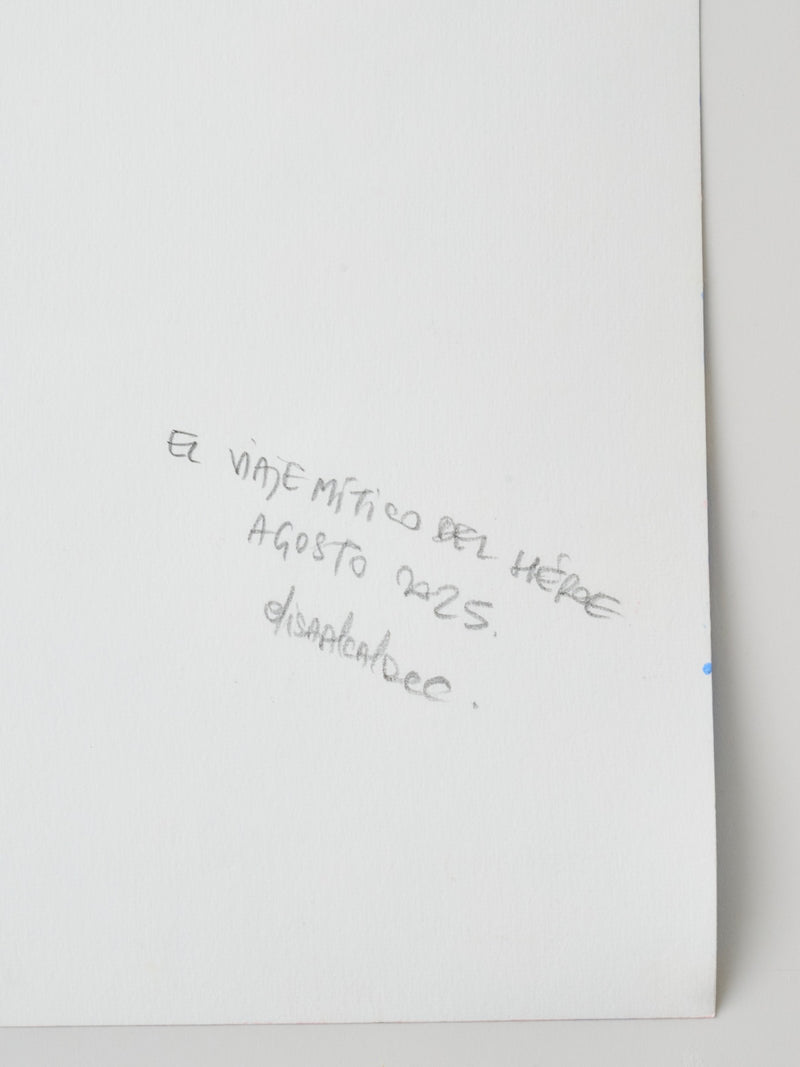 EL VIAJE MÍTICO DEL HÉROE
AGOSTO 2025.
elisaalcalDee.